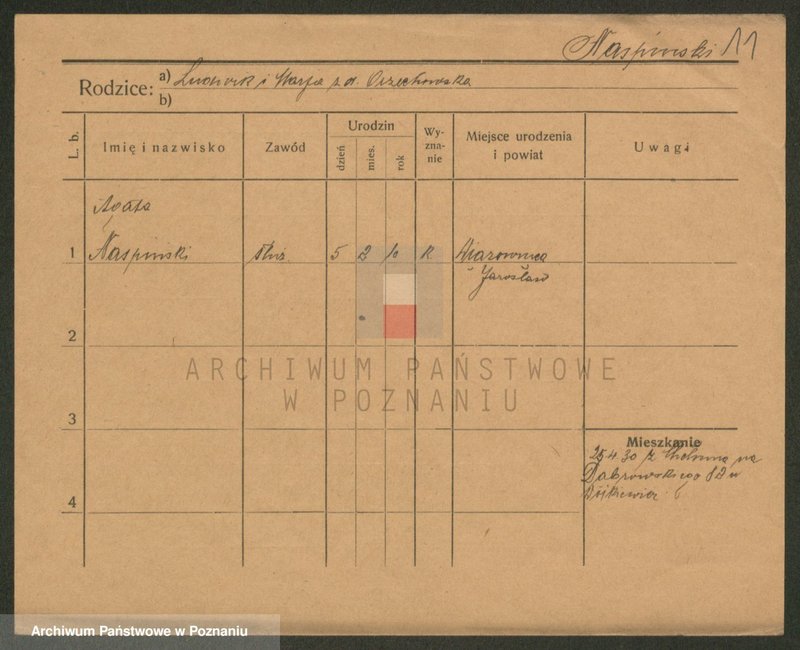 Naspiński 11
Rodzice: a) Ludwik i Marja z d. Orzechowska
b)
L. b. Imię i nazwisko Zawód Urodzin dzień mies. rok Wyznanie Miejsce urodzenia i powiat Uwagi
Agata
1 Naspiński służ. 5 2 10 R Wiązownica
Jarosław
2
ARCHIWUM PAŃSTWOWE
W POZNANIU
3
Mieszkanie
25 4 30 z Chełmna na
Dąbrowskiego
4
Archiwum Państwowe w Poznaniu